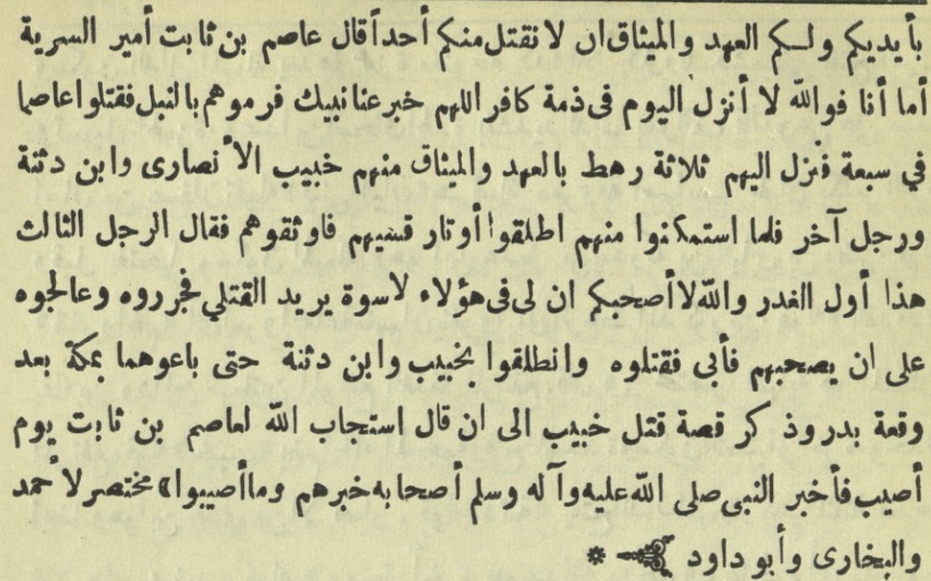 بأيديكم ولكم العهد والميثاق ان لا نقتل منكم أحدا قال عاصم بن ثابت أمير السرية
أما أنا فوالله لا أنزل اليوم فى ذمة كافر اللهم خبر عنا نبيك فرموهم بالنبل فقتلوا عاصما
في سبعة فنزل اليهم ثلاثة رهط بالعهد والميثاق منهم خبيب الأنصارى وابن دثنة
ورجل آخر فلما استمكنوا منهم اطلقوا أوتار قسيهم فاوثقوهم فقال الرجل الثالث
هذا أول الغدر والله لا أصحبكم ان لى فى هؤلاء لاسوة يريد القتلي فجرروه وعالجوه
على ان يصحبهم فأبى فقتلوه وانطلقوا بخبيب وابن دثنة حتى باعوهما بمكة بعد
وقعة بدر وذكر قصة قتل خبيب الى ان قال استجاب الله لعاصم بن ثابت يوم
أصيب فأخبر النبى صلى الله عليه وآله وسلم أصحابه خبرهم وما أصيبوا» مختصر لأحمد
والبخارى وأبو داود *